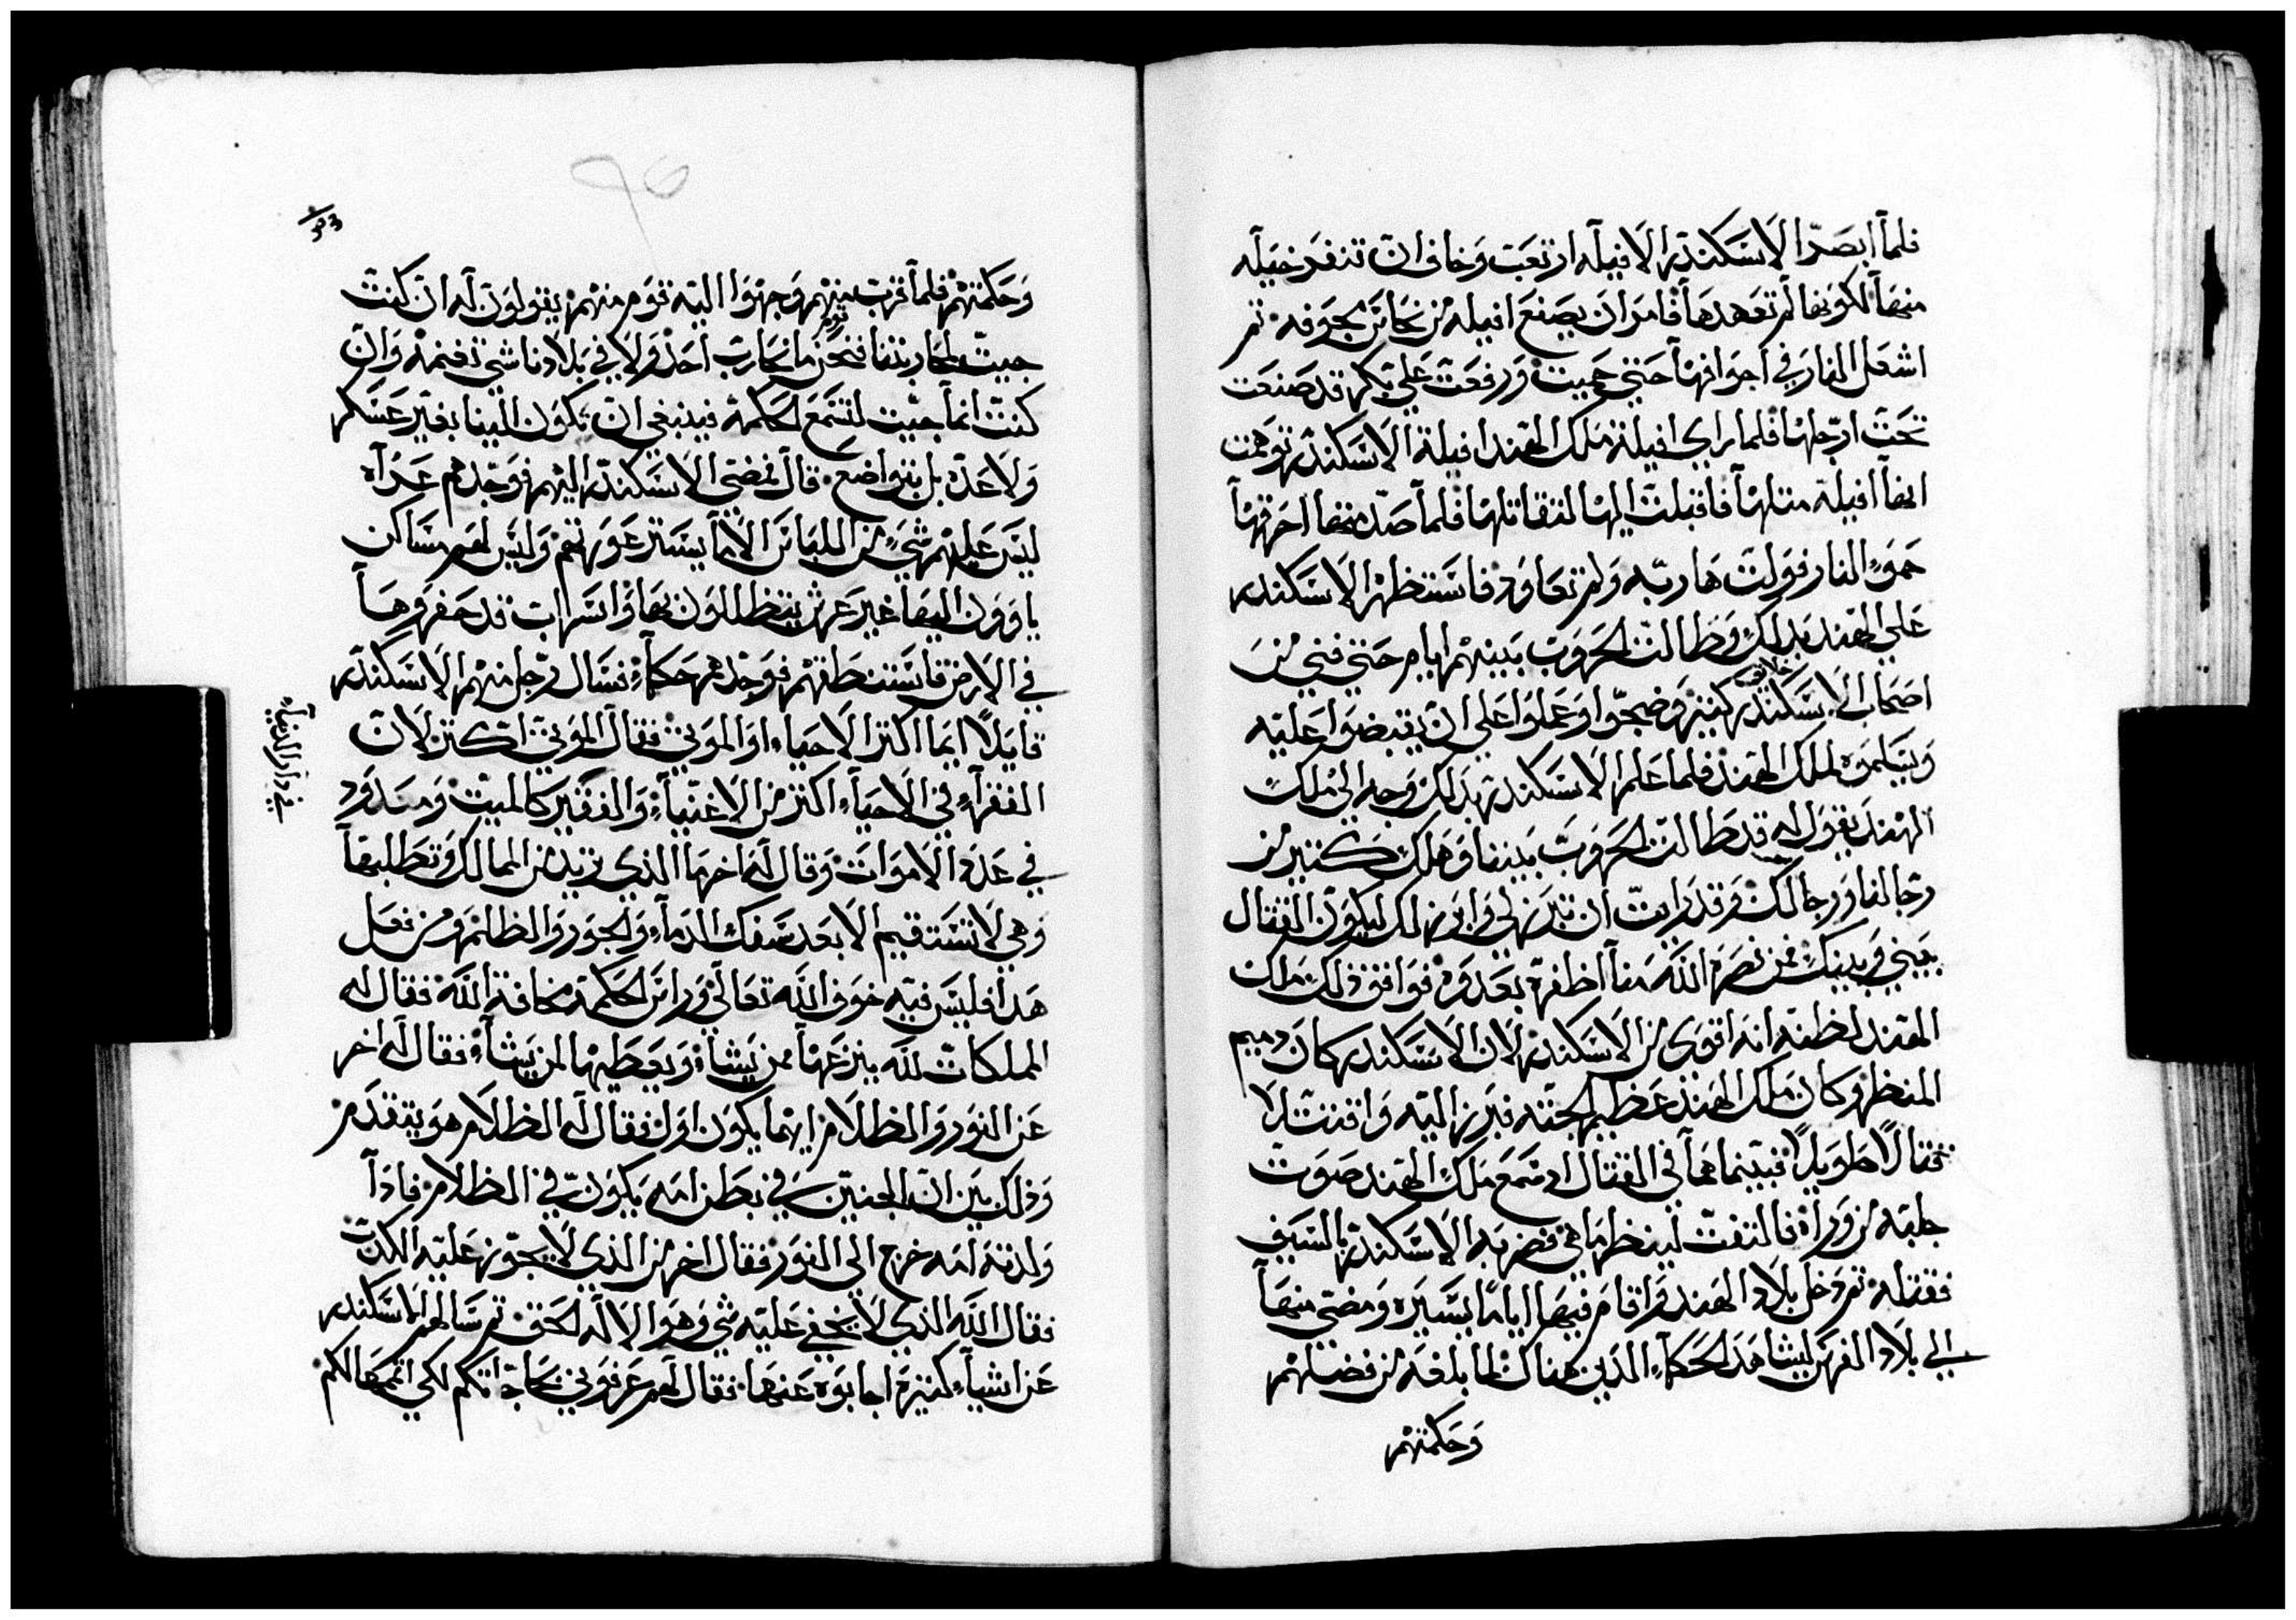 فلما ابصر الاسكندر الافيله ارتعب وخاف ان تنفر خيله
منها لكونها لم تعهدها فامر ان يصنع افيله من نحاس مجوفه ثم
اشعل النار في اجوافها حتي حميت ورفعت علي بكر قد صنعت
تحت ارجلها فلما راي افيلة ملك الهند افيلة الاسكندر توهمت
انها افيلة مثلها فاقبلت اليها لتقاتلها فلما صدمتها احرقتها
حمو النار فولت هاربه ولم تعاود فاستظهر الاسكندر
علي الهند بدلك وطالت الحروب بينهم ايام حتي فني من
اصحاب الاسكندر خلايق كثير وضجوا وعملوا علي ان يقبضوا عليه
ويسلموه لملك الهند فلما علم الاسكندر بدلك وجه الي ملك
الهند يقول له قد طالت الحروب بيننا وهلك كثير من
رجالنا ورجالك وقد رايت ان تبرز لي وابرز لك ليكون القتال
بيني وبينك فمن نصره الله منا اظفره بعدوه فوافق ذلك ملك
الهند لظنه انه اقوي من الاسكندر لان الاسكندر كان دميم
المنظر وكان ملك الهند عظيم الجثه فبرز اليه واقتتلا
قتالاً طويلاً فبينما هما في القتال اد سمع ملك الهند صوت
جلبه من وراه فالتفت لينظر ما هي فضربه الاسكندر بالسيف
فقتله ثم دخل بلاد الهند واقام فيها اياماً يسيره ومضي منها
الي بلاد الفرس ليشاهد الحكماء الدين هناك لما بلغه من فضلهم
وحكمتهم
وحكمتهم فلما قرب منهم وجهوا اليه قوم منهم يقولون له ان كنت
جيت لمحاربتنا فنحن قوم ما نحارب احد ولا في بلادنا شي تغنمه وان
كنت انما جيت لتسمع الحكمه فينبغي ان يكون الينا بغير عسكر
ولا عده بل بتواضع قال فمضي الاسكندر اليهم فوجدهم عراه
ليس عليهم شي من اللباس الا ما يستر عورتهم وليس لهم مساكن
ياوون اليها غير عرش يتظللون بها واسراب قد حفروها
في الارض فاستنطقهم فوجدهم حكماء فسال رجل منهم الاسكندر
قايلاً ايما اكثر الاحياء او الموتي فقال الموتي اكثر لان
الفقراء في الاحياء اكثر من الاغنياء والفقير كالميت ومعدود
في عدد الاموات وقال له اخر ما الذي تريد من الممالك وتطلبها
في دار الدنيا
وهي لا تستقيم الا بعد سفك الدماء والجور والظلم ومن فعل
هدا فليس فيه خوف الله تعالي وراس الحكمة مخافة الله فقال له
المملكات لله ينزعها ممن يشاء ويعطيها لمن يشاء فقال له اخر
عن النور والظلام ايهما يكون اول فقال له الظلام هو يتقدم
وذلك بين ان الجنين في بطن امه يكون في الظلام فادا
ولدته امه خرج الي النور فقال اخر من الذي لا يجوز عليه الكدب
فقال الله الذي لا يخفي عليه شي وهو الاله الحق ثم سالهم الاسكندر
عن اشياء كثيرة اجابوه عنها فقال لهم عرفوني بحاجاتكم لكي اتمها لكم